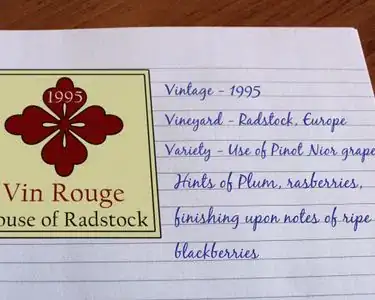 1995
Vin Rouge
ouse of Radstock
Vintage - 1995
Vineyard - Radstock, Europe
Variety - Use of Pinot Nior grape
Hints of Plum, rasberries,
finishing upon notes of ripe
blackberries